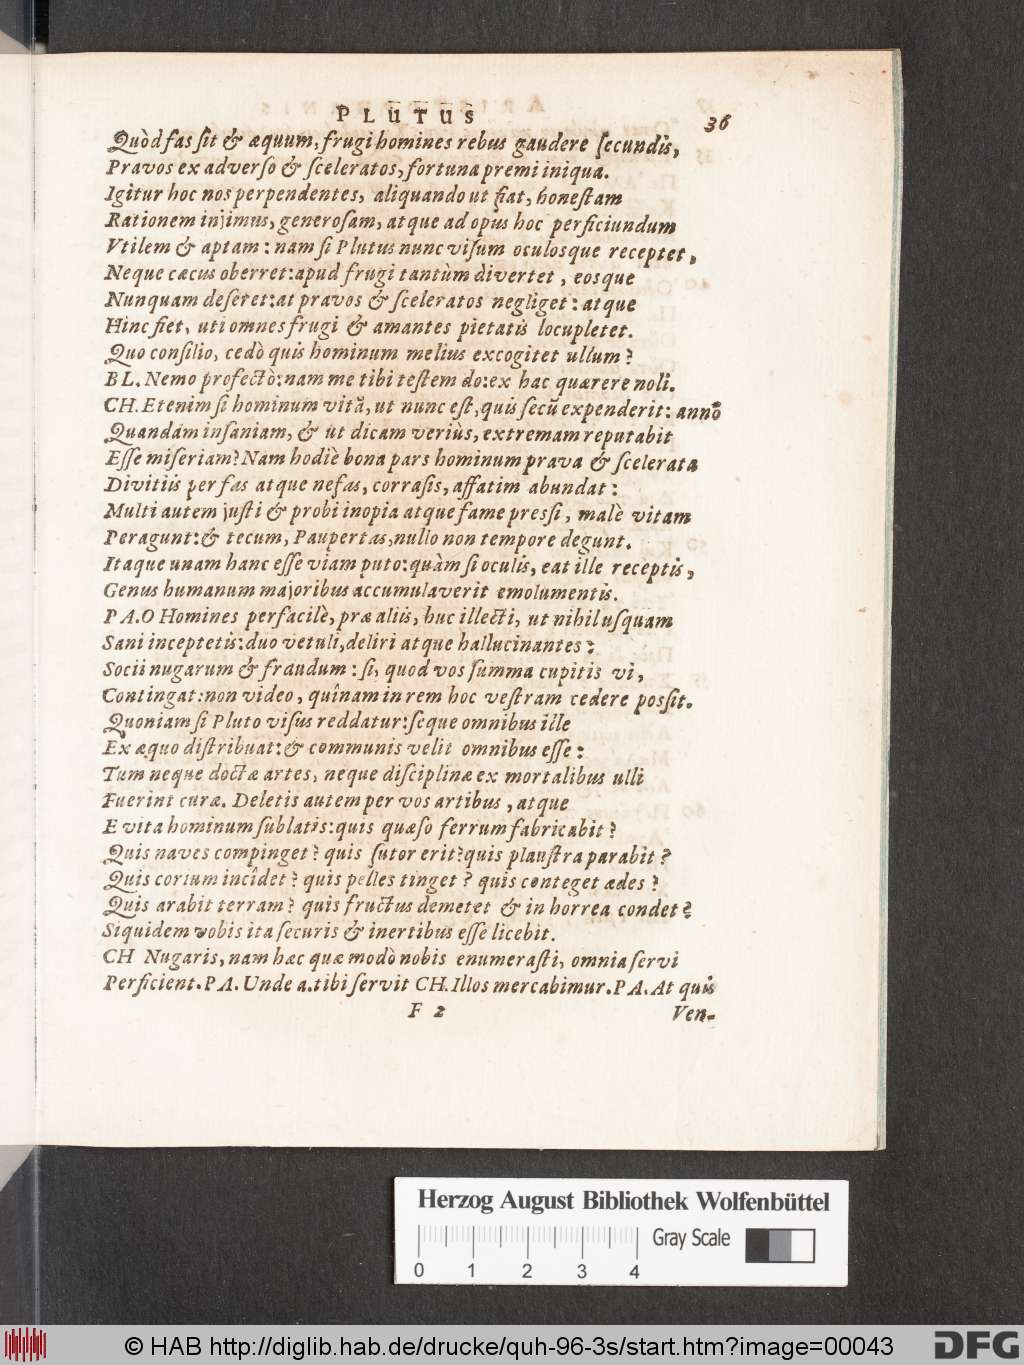 PLUTUS 36
Quòd fas ſit & æquum, frugi homines rebus gaudere ſecundis,
Pravos ex adverſo & ſceleratos, fortuna premi iniqua.
Igitur hoc nos perpendentes, aliquando ut fiat, honeſtam
Rationem injimus, generoſam, atque ad opus hoc perficiundum
Vtilem & aptam: nam ſi Plutus nunc viſum oculosque receptet,
Neque cæcus oberret: apud frugi tantùm divertet, eosque
Nunquam deſeret: at pravos & ſceleratos negliget: atque
Hinc fiet, uti omnes frugi & amantes pietatis locupletet.
Quo conſilio, cedò quis hominum melius excogitet ullum?
BL. Nemo profectò: nam me tibi teſtem do: ex hac quærere noli.
CH. Etenim ſi hominum vitā, ut nunc eſt, quis ſecū expenderit: annō
Quandam inſaniam, & ut dicam veriùs, extremam reputabit
Eſſe miſeriam? Nam hodiè bona pars hominum prava & ſcelerata
Divitiis per fas atque nefas, corraſis, affatim abundat:
Multi autem juſti & probi inopia atque fame preſſi, malè vitam
Peragunt: & tecum, Paupertas, nullo non tempore degunt.
Itaque unam hanc eſſe viam puto: quàm ſi oculis, eat ille receptis,
Genus humanum majoribus accumulaverit emolumentis.
PA. O Homines perfacilè, præ aliis, huc illecti, ut nihil uſquam
Sani inceptetis: duo vetuli, deliri atque hallucinantes:
Socii nugarum & fraudum: ſi, quod vos ſumma cupitis vi,
Contingat: non video, quînam in rem hoc veſtram cedere poſſit.
Quoniam ſi Pluto viſus reddatur: ſeque omnibus ille
Ex æquo diſtribuat: & communis velit omnibus eſſe:
Tum neque doctæ artes, neque diſciplinæ ex mortalibus ulli
Fuerint curæ. Deletis autem per vos artibus, atque
E vita hominum ſublatis: quis quæſo ferrum fabricabit?
Quis naves compinget? quis ſutor erit? quis plauſtra parabit?
Quis corium incîdet? quis pelles tinget? quis conteget ædes?
Quis arabit terram? quis fructus demetet & in horrea condet?
Siquidem vobis ita ſecuris & inertibus eſſe licebit.
CH Nugaris, nam hæc quæ modò nobis enumeraſti, omnia ſervi
Perficient. PA. Unde a. tibi ſervit CH. Illos mercabimur. PA. At quis
F 2 Ven-
Herzog August Bibliothek Wolfenbüttel
Gray Scale
0 1 2 3 4
© HAB http://diglib.hab.de/drucke/quh-96-3s/start.htm?image=00043 DFG